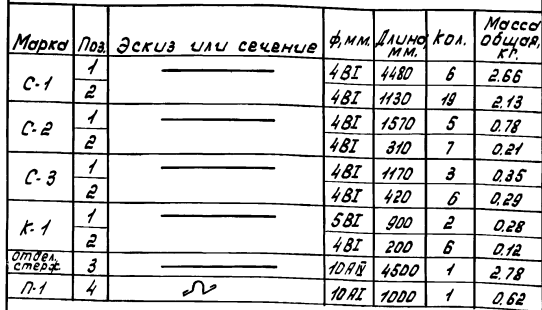 Марка Поз. Эскиз или сечение ф,мм. Длина, мм. Кол. Масса общая, кг.
С-1 1 4ВI 4480 6 2.66
2 4ВI 1130 19 2.13
С-2 1 4ВI 1570 5 0.78
2 4ВI 310 7 0.21
С-3 1 4ВI 1170 3 0.35
2 4ВI 420 6 0.29
К-1 1 5ВI 900 2 0.28
2 4ВI 200 6 0.12
отдел. стерж. 3 4500 1 2.78
П-1 4 10АI 1000 1 0.62